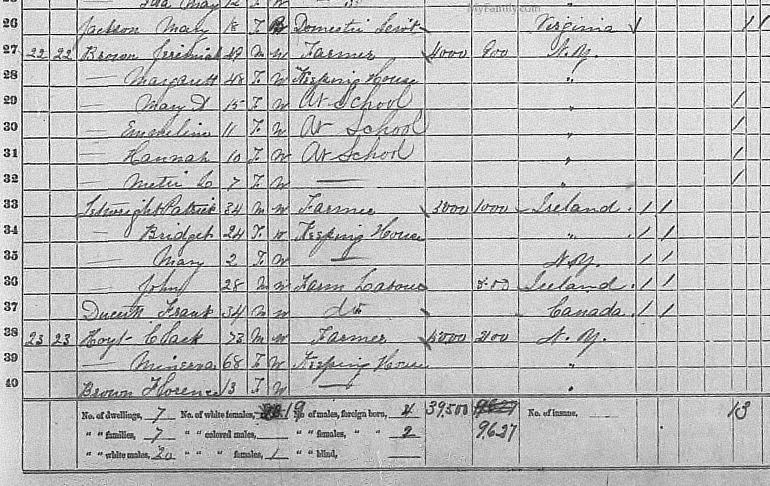 MyFamily.com
26 Jackson Mary 18 F B Domestic Servt Virginia 1 1 1
27 22 22 Brown Jeremiah 49 m w Farmer 4000 900 N.Y.
28 — Margarett 48 F W Keeping House "
29 — Mary A 15 F W At School " 1
30 — Emmeline 11 F W At School " 1
31 — Hannah 10 F W At School " 1
32 — 7 F W — " 1
33 Patrick 34 m w Farmer 3000 1000 Ireland 1 1
34 — Bridget 24 F W Keeping House " 1 1
35 — Mary 2 F W — N.Y. 1 1
36 — John 28 m w Farm Labour Ireland 1 1
37 Frank 34 m w do Canada 1 1
38 23 23 Hoyt Clark 73 m w Farmer 2100 N.Y.
39 — Minerva 68 F W Keeping House "
40 Brown Florence 13 F W — "
No. of dwellings, 7 No. of white females, 19 No. of males, foreign born, 4 39,500 9627 No. of insane, 13
" " families, 7 " " colored males, " " females, " " 2 9,627
" " white males, 20 " " " females, 1 " " blind,